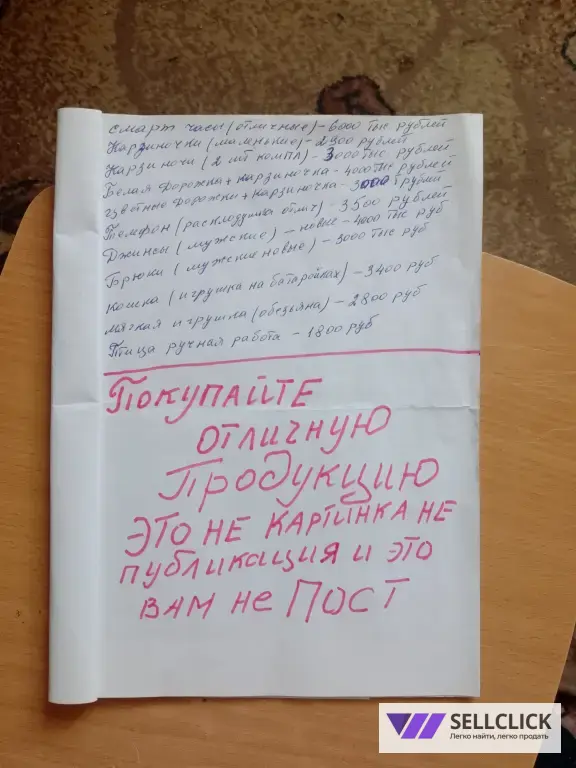 смарт часы (отличные) – 6000 тыс рублей
Карзиночки (маленькие) – 2900 рублей
Карзиночи (2 шт компл) – 3000 тыс рублей
Белая дорожка + карзиночка – 4000 тыс рублей
Цветные дорожки + карзиночка – 3000 рублей
Телефон (расклодушка отлич) – 3500 рублей
Джинсы (мужские) – новые – 4000 тыс руб
Брюки (мужские новые) – 3000 тыс руб
Кошка (игрушка на батарейках) – 3400 руб
мягкая игрушка (обезьяна) – 2800 руб
Птица ручная работа – 1800 руб
ПОКУПАЙТЕ
ОТЛИЧНУЮ
ПРОДУКЦИЮ
ЭТО НЕ КАРТИНКА НЕ
ПУБЛИКАЦИЯ И ЭТО
ВАМ НЕ ПОСТ
SELLCLICK
Легко найти, легко продать